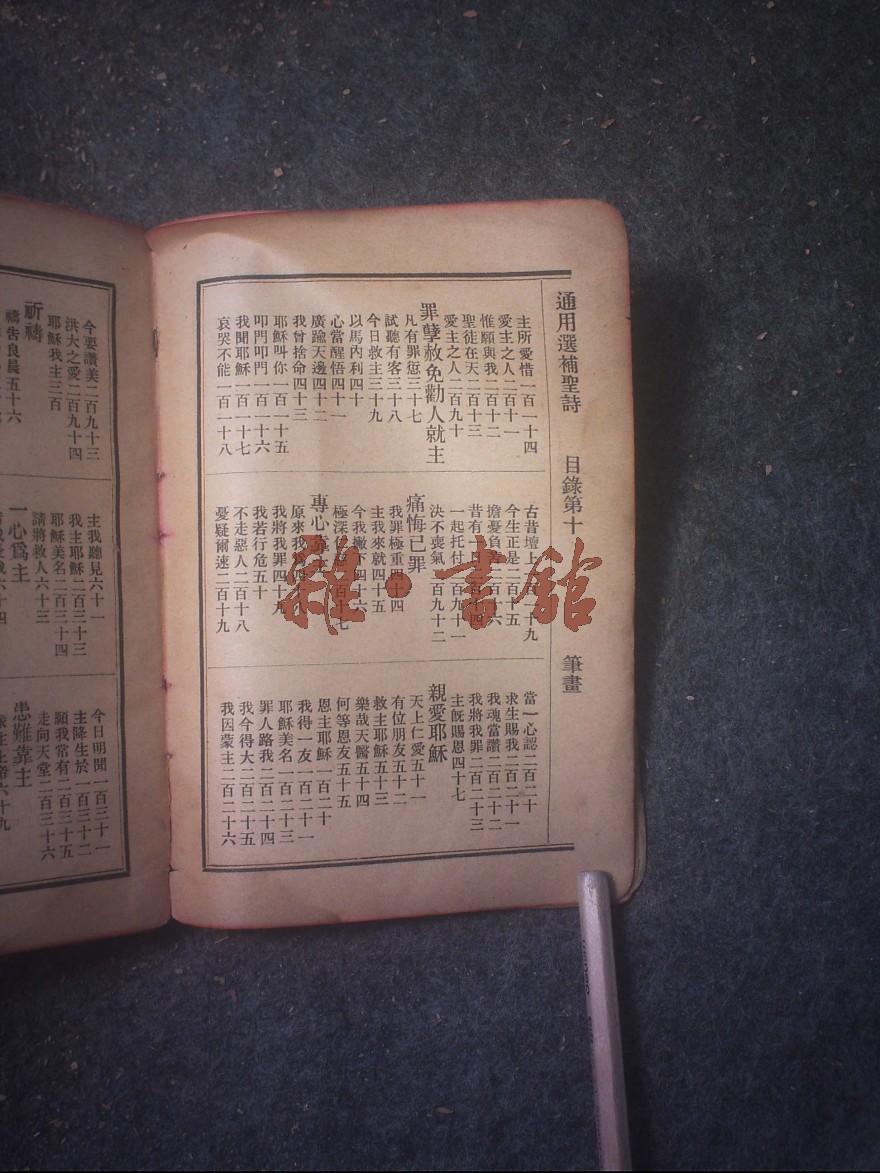 通用選補聖詩 目錄第十一 筆畫
主所愛惜一百一十四
愛主之人二百十一
惟願與我二百十二
聖徒在天二百十三
愛主之人二百九十
罪孽赦免勸人就主
凡有罪愆三十七
試聽有客三十八
今日救主三十九
以馬內利四十
心當醒悟四十一
廣踰天邊四十二
我曾捨命四十三
耶穌叫你一百一十五
叩門叩門一百一十六
我聞耶穌一百一十七
哀哭不能一百一十八
古昔壇上一百一十九
今生正是二百十五
擔憂負
昔有一
一起托付二百九十一
決不喪氣二百九十二
痛悔已罪
我罪極重四十四
主我來就四十五
今我撇下四十六
極深
專心靠
原來我
我將我罪四十九
我若行危五十
不走惡人二百十八
憂疑爾速二百十九
當一心認二百二十
求生賜我二百二十一
我魂當讚二百二十二
我將我罪二百二十三
主旣賜恩四十七
親愛耶穌
天上仁愛五十一
有位朋友五十二
救主耶穌五十三
樂哉天醫五十四
何等恩友五十五
恩主耶穌一百二十
我得一友一百二十一
耶穌美名一百二十三
罪人路我二百二十四
我今得大二百二十五
我因蒙主二百二十六
今要讚美二百九十三
洪大之愛二百九十四
耶穌我主三百
祈禱
禱告良晨五十六
主我聽見六十一
我主耶穌二百三十三
耶穌美名二百三十四
請將救人六十三
一心爲主
今日明聞一百三十一
主降生於一百三十二
願我常有二百三十五
走向天堂二百三十六
患難靠主
雜·書舘